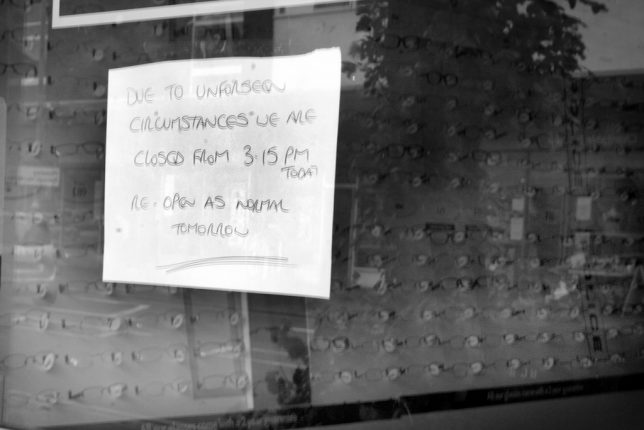 DUE TO UNFORSEEN
CIRCUMSTANCES" WE ARE
CLOSED FROM 3.15 PM
TODAY
RE-OPEN AS NORMAL
TOMORROW